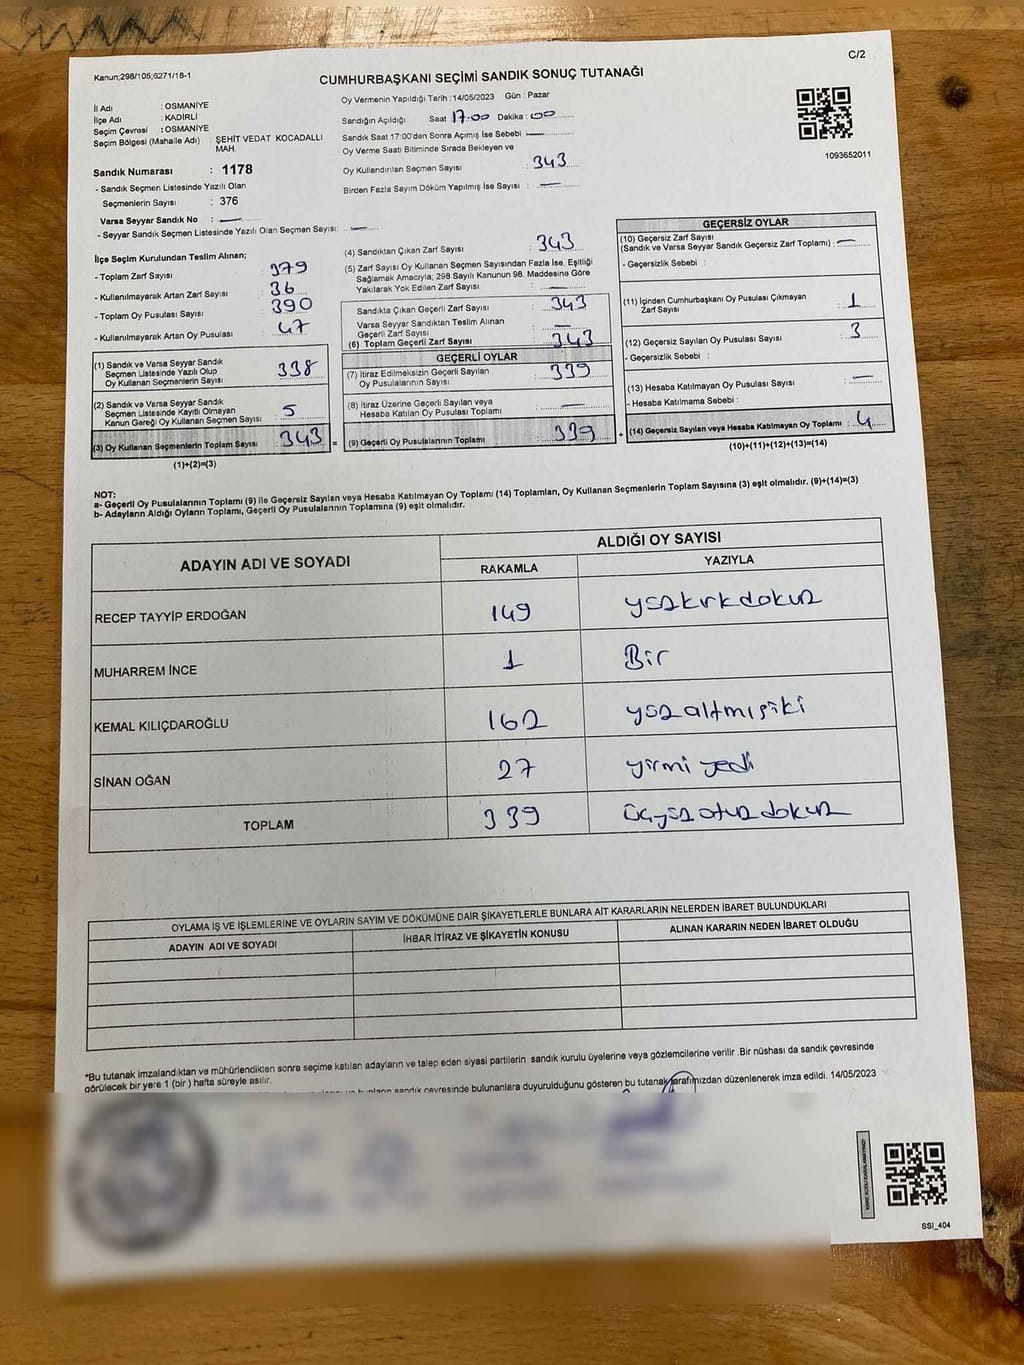 Kanun;298/105;6271/18-1
C/2
CUMHURBAŞKANI SEÇİMİ SANDIK SONUÇ TUTANAĞI
İl Adı : OSMANİYE
İlçe Adı : KADİRLİ
Seçim Çevresi : OSMANİYE
Seçim Bölgesi (Mahalle Adı) : ŞEHİT VEDAT KOCADALLI MAH.
Sandık Numarası : 1178
- Sandık Seçmen Listesinde Yazılı Olan
Seçmenlerin Sayısı : 376
Varsa Seyyar Sandık No : —
- Seyyar Sandık Seçmen Listesinde Yazılı Olan Seçmen Sayısı: —
Oy Vermenin Yapıldığı Tarih :14/05/2023 Gün : Pazar
Sandığın Açıldığı Saat 17.00 Dakika : 00
Sandık Saat 17:00'den Sonra Açılmış İse Sebebi —
Oy Verme Saati Bitiminde Sırada Bekleyen ve
Oy Kullandırılan Seçmen Sayısı : 343
Birden Fazla Sayım Döküm Yapılmış İse Sayısı : —
1093652011
İlçe Seçim Kurulundan Teslim Alınan;
- Toplam Zarf Sayısı : 379
- Kullanılmayarak Artan Zarf Sayısı : 36
- Toplam Oy Pusulası Sayısı : 390
- Kullanılmayarak Artan Oy Pusulası : 47
(1) Sandık ve Varsa Seyyar Sandık
Seçmen Listesinde Yazılı Olup
Oy Kullanan Seçmenlerin Sayısı : 338
(2) Sandık ve Varsa Seyyar Sandık
Seçmen Listesinde Kayıtlı Olmayan
Kanun Gereği Oy Kullanan Seçmen Sayısı : 5
(3) Oy Kullanan Seçmenlerin Toplam Sayısı : 343 =
(1)+(2)=(3)
(4) Sandıktan Çıkan Zarf Sayısı : 343
(5) Zarf Sayısı Oy Kullanan Seçmen Sayısından Fazla İse, Eşitliği
Sağlamak Amacıyla; 298 Sayılı Kanunun 98. Maddesine Göre
Yakılarak Yok Edilen Zarf Sayısı : —
Sandıkta Çıkan Geçerli Zarf Sayısı : 343
Varsa Seyyar Sandıktan Teslim Alınan
Geçerli Zarf Sayısı : —
(6) Toplam Geçerli Zarf Sayısı : 343
GEÇERLİ OYLAR
(7) İtiraz Edilmeksizin Geçerli Sayılan
Oy Pusulalarının Sayısı : 339
(8) İtiraz Üzerine Geçerli Sayılan veya
Hesaba Katılan Oy Pusulası Toplamı : —
(9) Geçerli Oy Pusulalarının Toplamı : 339 +
GEÇERSİZ OYLAR
(10) Geçersiz Zarf Sayısı
(Sandık ve Varsa Seyyar Sandık Geçersiz Zarf Toplamı) : —
- Geçersizlik Sebebi :
(11) İçinden Cumhurbaşkanı Oy Pusulası Çıkmayan
Zarf Sayısı : 1
(12) Geçersiz Sayılan Oy Pusulası Sayısı : 3
- Geçersizlik Sebebi :
(13) Hesaba Katılmayan Oy Pusulası Sayısı : —
- Hesaba Katılmama Sebebi :
(14) Geçersiz Sayılan veya Hesaba Katılmayan Oy Toplamı : 4
(10)+(11)+(12)+(13)=(14)
NOT:
a- Geçerli Oy Pusulalarının Toplamı (9) ile Geçersiz Sayılan veya Hesaba Katılmayan Oy Toplamı (14) Toplamları, Oy Kullanan Seçmenlerin Toplam Sayısına (3) eşit olmalıdır. (9)+(14)=(3)
b- Adayların Aldığı Oyların Toplamı, Geçerli Oy Pusulalarının Toplamına (9) eşit olmalıdır.
ADAYIN ADI VE SOYADI
ALDIĞI OY SAYISI
RAKAMLA YAZIYLA
RECEP TAYYİP ERDOĞAN 149 yüzkırkdokuz
MUHARREM İNCE 1 Bir
KEMAL KILIÇDAROĞLU 162 yüzaltmışiki
SİNAN OĞAN 27 yirmi yedi
TOPLAM 339 üçyüz otuz dokuz
OYLAMA İŞ VE İŞLEMLERİNE VE OYLARIN SAYIM VE DÖKÜMÜNE DAİR ŞİKAYETLERLE BUNLARA AİT KARARLARIN NELERDEN İBARET BULUNDUKLARI
ADAYIN ADI VE SOYADI İHBAR İTİRAZ VE ŞİKAYETİN KONUSU ALINAN KARARIN NEDEN İBARET OLDUĞU
*Bu tutanak imzalandıktan ve mühürlendikten sonra seçime katılan adayların ve talep eden siyasi partilerin sandık kurulu üyelerine veya gözlemcilerine verilir .Bir nüshası da sandık çevresinde
görülecek bir yere 1 (bir ) hafta süreyle asılır.
sandık çevresinde bulunanlara duyurulduğunu gösteren bu tutanak tarafımızdan düzenlenerek imza edildi. 14/05/2023
SSI_404